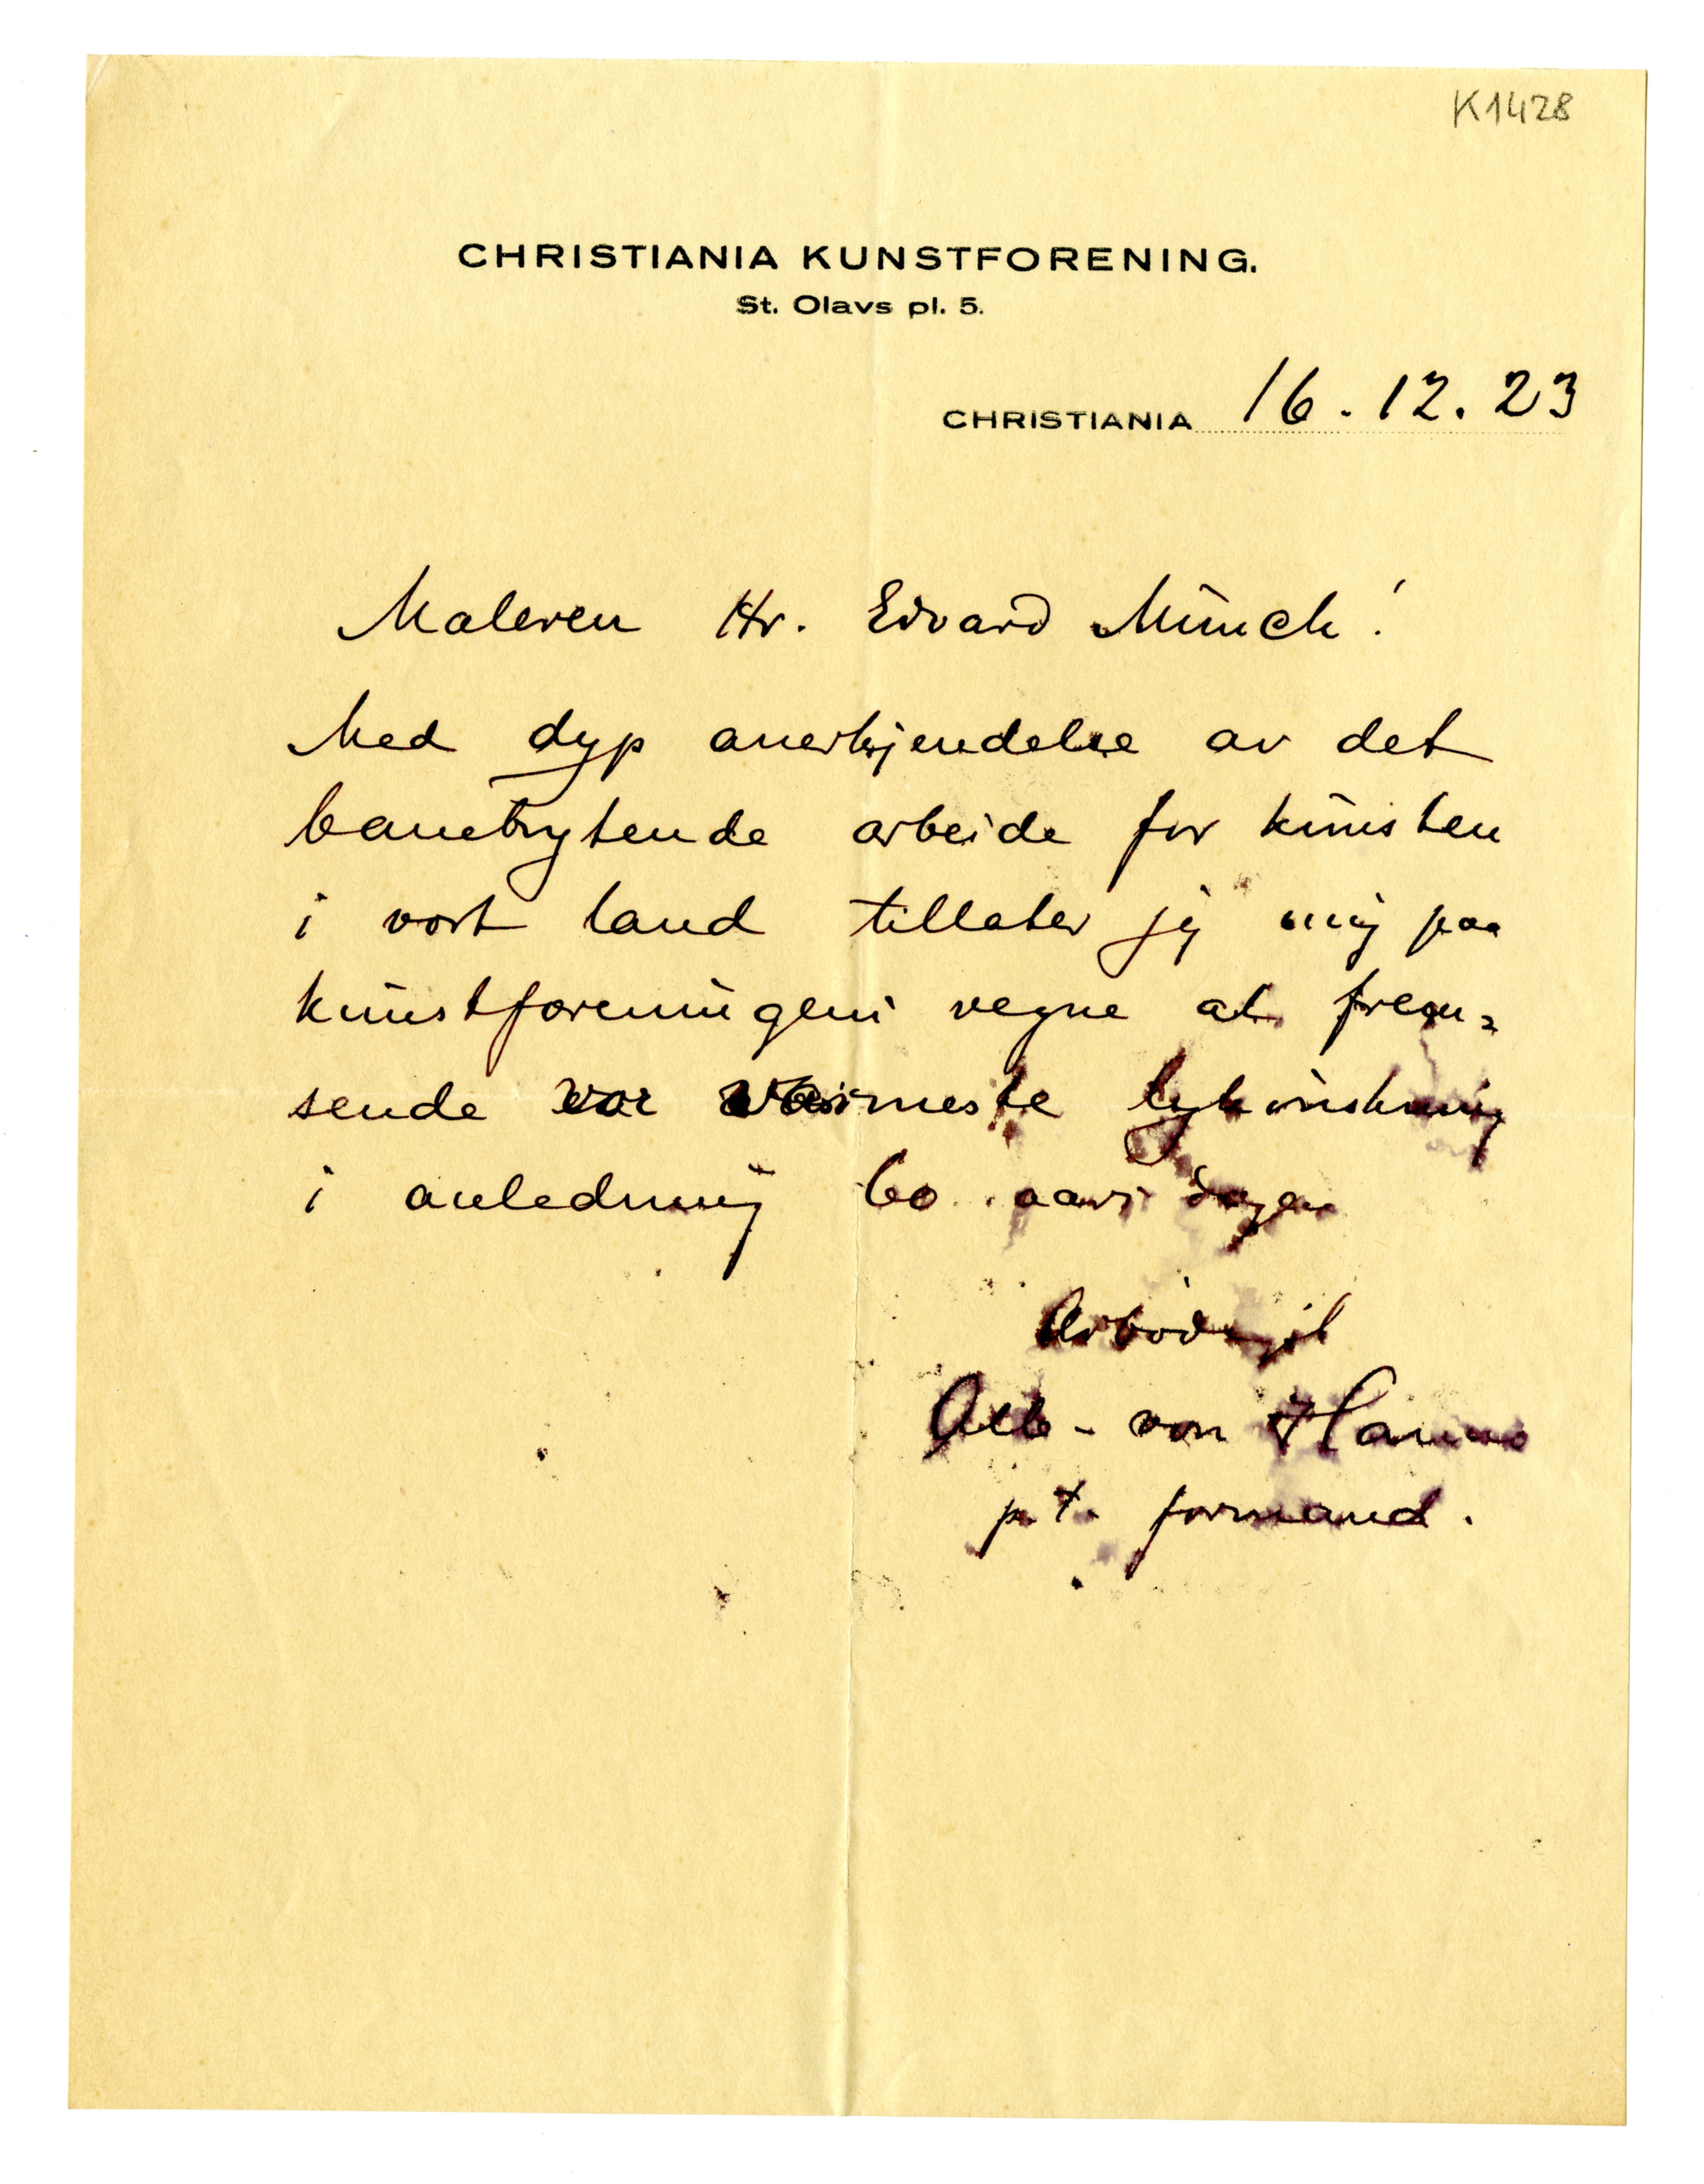 K1428
CHRISTIANIA KUNSTFORENING.
St. Olavs pl. 5.
CHRISTIANIA 16.12.23
Maleren Hr. Edvard Munch!
Med dyp anerkjendelse av det
banebrytende arbeide for kunsten
i vort land tillater jeg mig paa
kunstforeningens vegne at frem=
sende vor varmeste lykønskning
i anledning 60 aars dagen
Ærbødigst
Alb. von Hanno
p.t. formand.